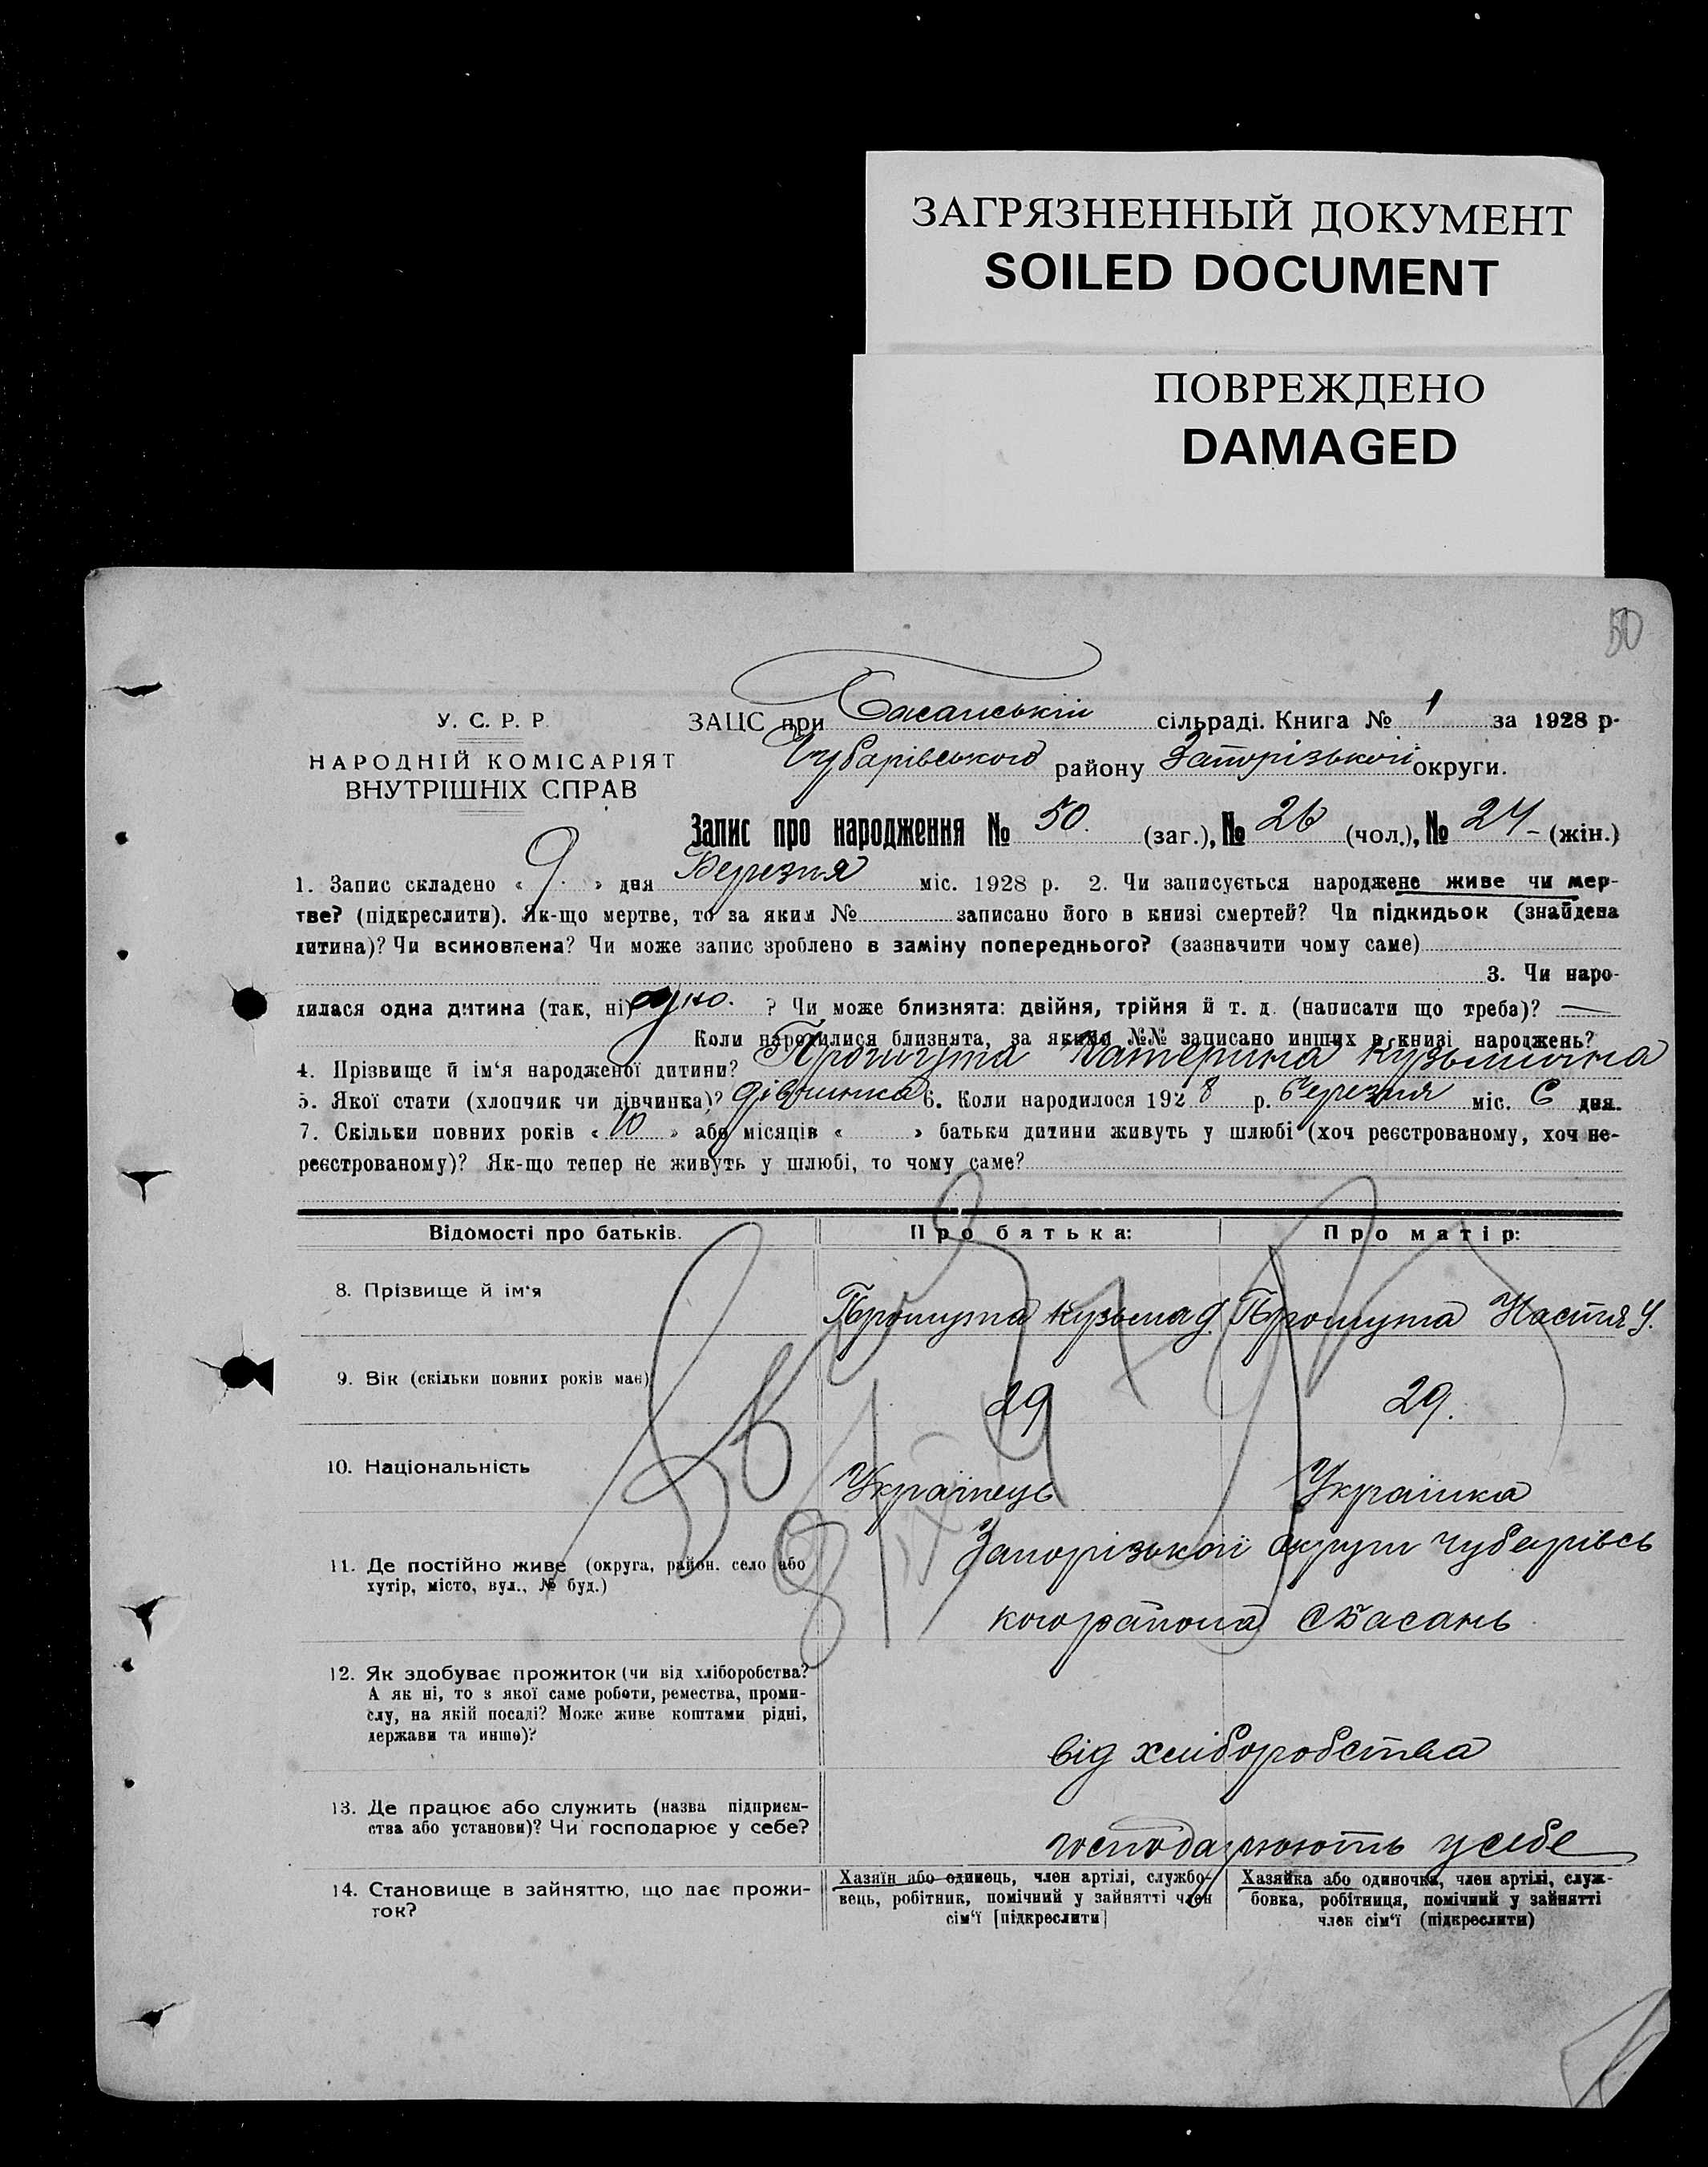 ЗАГРЯЗНЕННЫЙ ДОКУМЕНТ
SOILED DOCUMENT
ПОВРЕЖДЕНО
DAMAGED
50
У. С. Р. Р.
НАРОДНІЙ КОМІСАРІЯТ
ВНУТРІШНІХ СПРАВ
ЗАЦС при Басанській сільраді. Книга № 1 за 1928 р.
Чубарівського району Запорізької округи.
Запис про народження № 50. (заг.), № 26 (чол.), № 24 (жін.)
1. Запис складено « 9 » дня Березня міс. 1928 р. 2. Чи записується народжене живе чи мер-
тве? (підкреслити). Як-що мертве, то за яким № записано його в книзі смертей? Чи підкидьок (знайдена
дитина)? Чи всиновлена? Чи може запис зроблено в заміну попереднього? (зазначити чому саме)
3. Чи наро-
дилася одна дитина (так, ні) одно. ? Чи може близнята: двійня, трійня й т. д. (написати що треба)? —
Коли народилися близнята, за якими №№ записано инших в книзі народжень?
4. Прізвище й ім'я народженої дитини? Катерина Кузьмична
5. Якої стати (хлопчик чи дівчинка)? дівчинка 6. Коли народилося 1928 р. березня міс. 6 дня.
7. Скільки повних років « 10 » або місяців « » батьки дитини живуть у шлюбі (хоч реєстрованому, хоч не-
реєстрованому)? Як-що тепер не живуть у шлюбі, то чому саме?
Відомості про батьків.
Про батька:
Про матір:
8. Прізвище й ім'я
Кузьма
Настя
9. Вік (скільки повних років має)
29
29.
10. Національність
Українець
Українка
11. Де постійно живе (округа, район, село або
хутір, місто, вул., № буд.)
Запорізької округи Чубарівсь
кого района с Басань
12. Як здобуває прожиток (чи від хліборобства?
А як ні, то з якої саме роботи, ремества, проми-
слу, на якій посаді? Може живе коштами рідні,
держави та инше)?
від хліборобства
13. Де працює або служить (назва підприєм-
ства або установи)? Чи господарює у себе?
господарюють у себе
14. Становище в зайняттю, що дає прожи-
ток?
Хазяїн або одинець, член артілі, службо-
вець, робітник, помічний у зайнятті член
сім'ї [підкреслити]
Хазяйка або одиночка, член артілі, служ-
бовка, робітниця, помічний у зайнятті
член сім'ї (підкреслити)